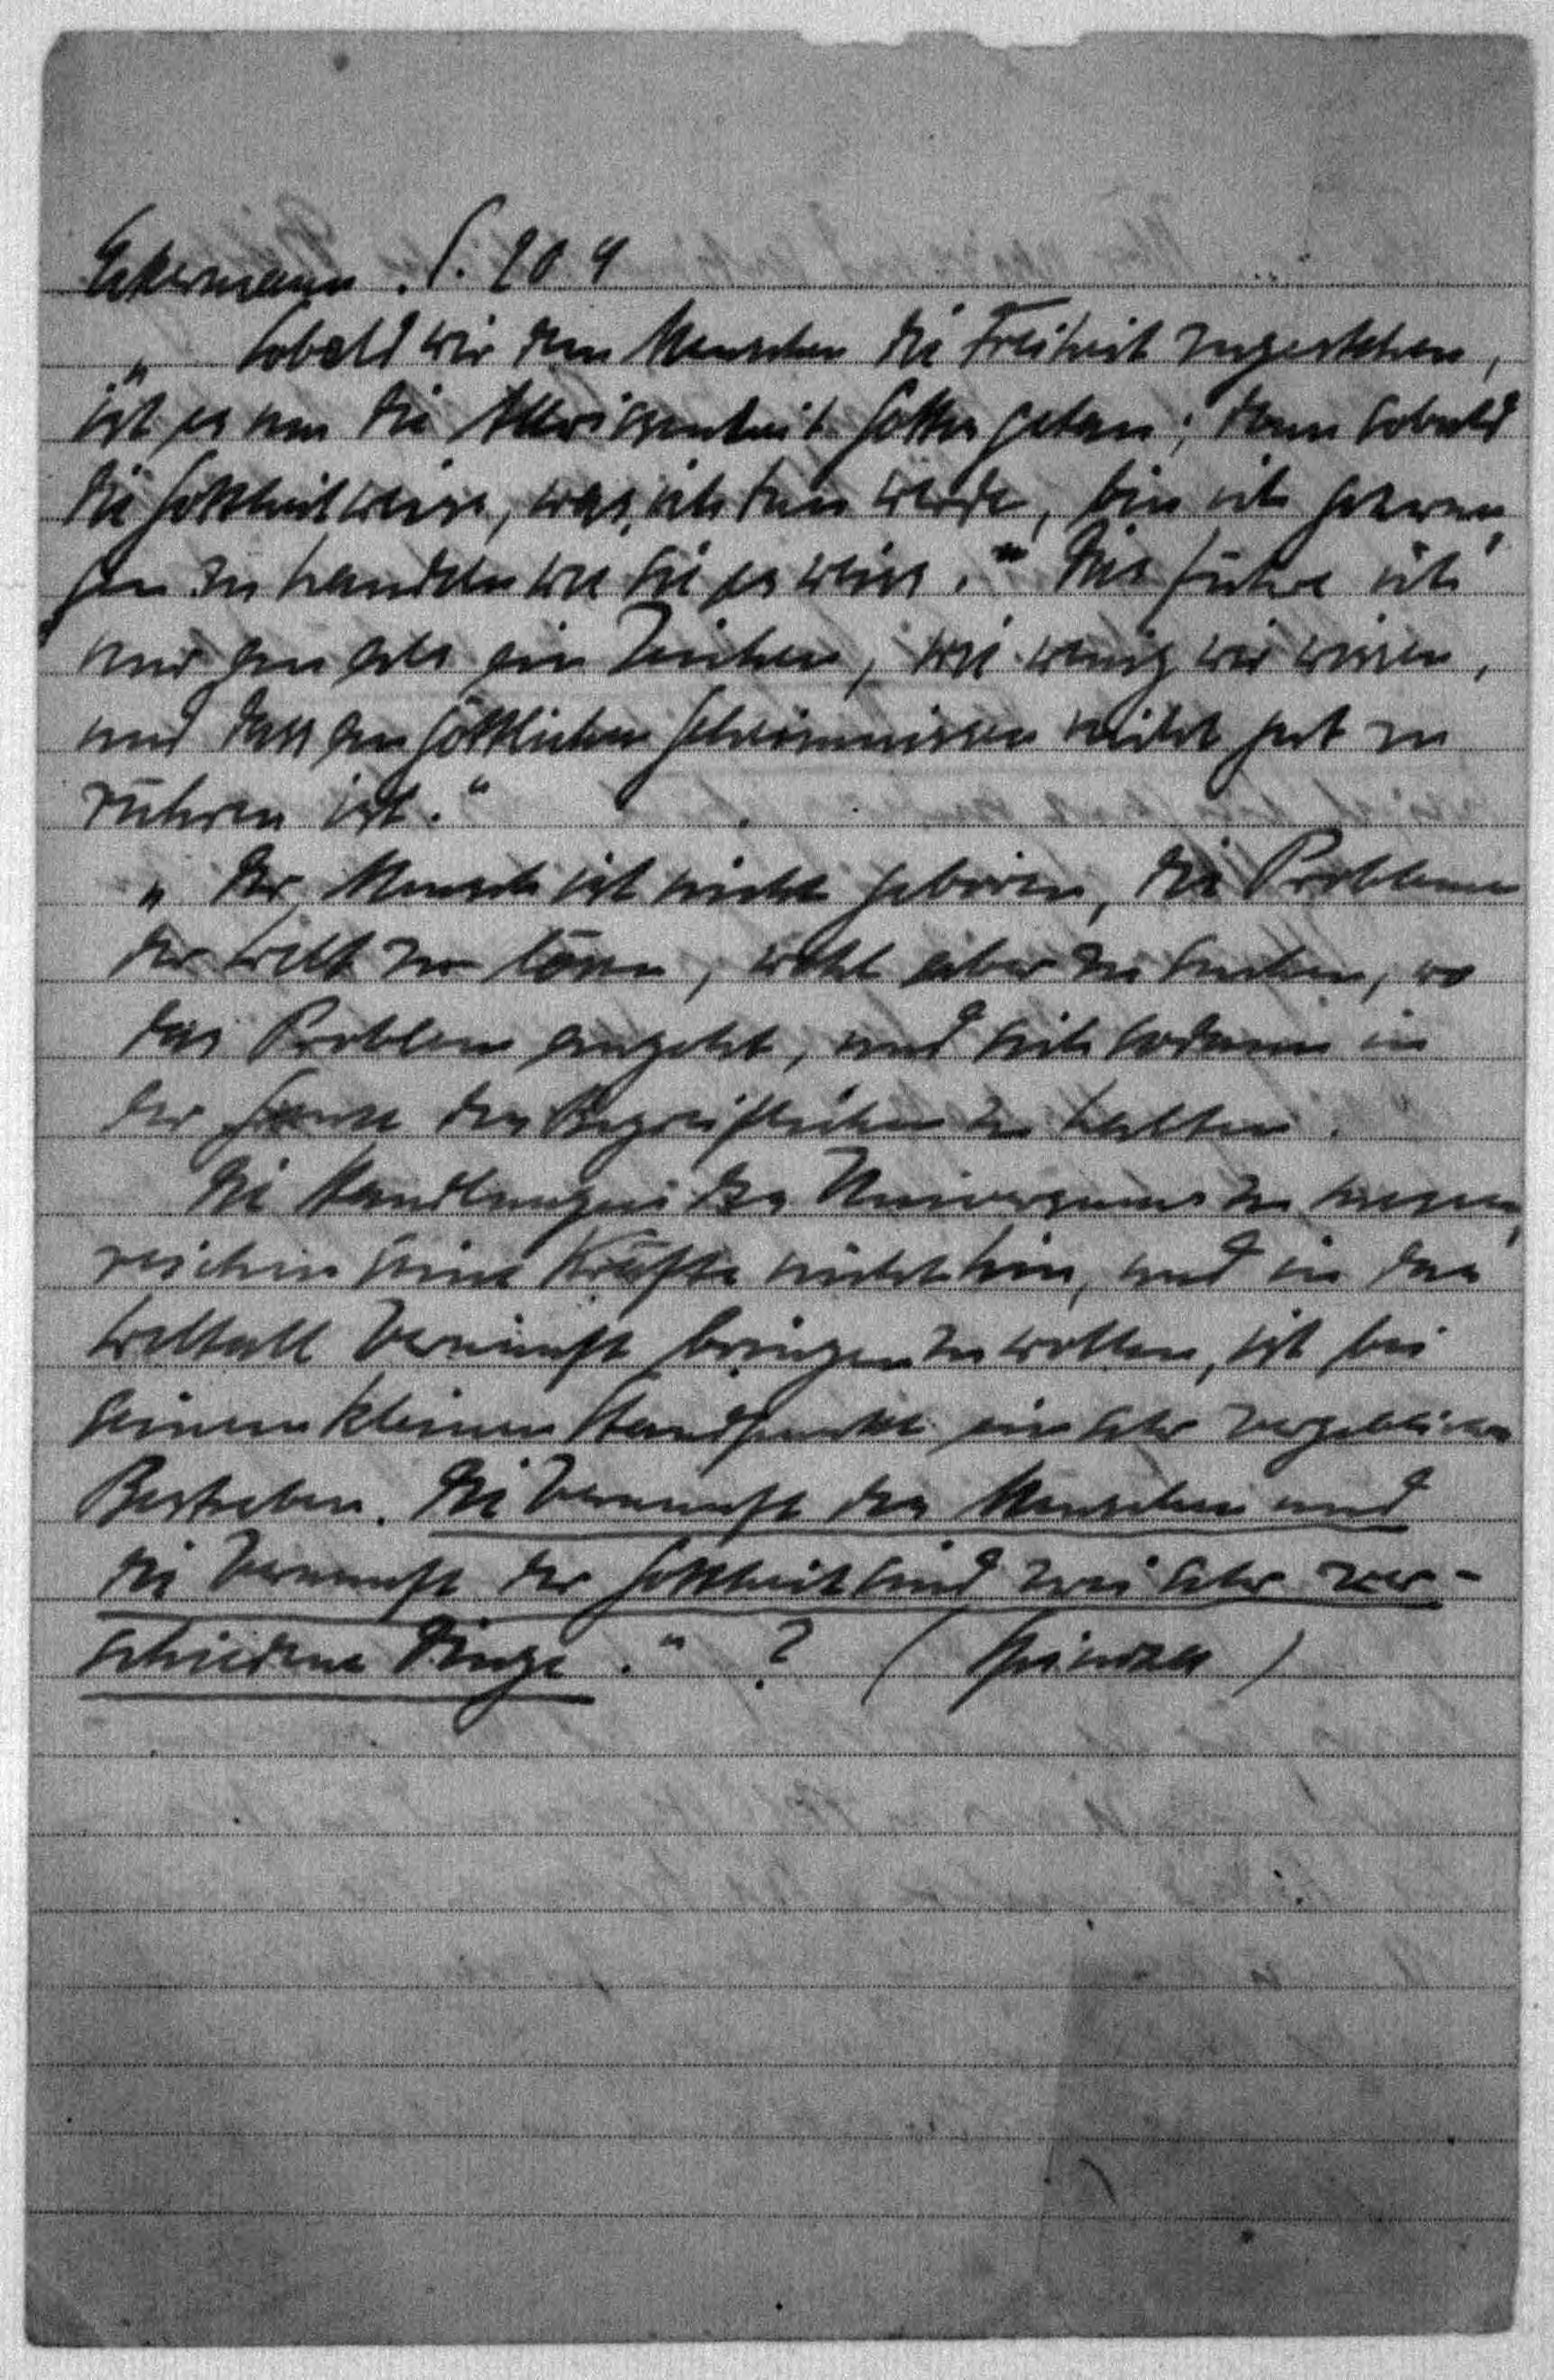 Eckermann. S. 204
„ Sobald wir dem Menschen die Freiheit zugestehen,
ist es um die Allwissenheit Gottes getan; denn sobald
die Gottheit weiss, was ich tun werde, bin ich gezwun
gen zu handeln wie sie es weiss." Dies führe ich
nur an als ein Zeichen, wie wenig wir wissen,
und dass an göttlichen Geheimnissen nicht gut zu
rühren ist."
„ Der Mensch ist nicht geboren, die Probleme
der Welt zu lösen, wohl aber zu suchen, wo
das Problem angeht, und sich sodann in
der Grenze des Begreiflichen zu halten.
Die Handlungen des Universums zu messen,
reichen seine Kräfte nicht hin, und in das
Weltall Vernunft bringen zu wollen, ist bei
seinem kleinen Standpunkt ein sehr vergebliches
Bestreben. Die Vernunft des Menschen und
die Vernunft der Gottheit sind zwei sehr ver-
schiedene Dinge." ? (Spinoza)